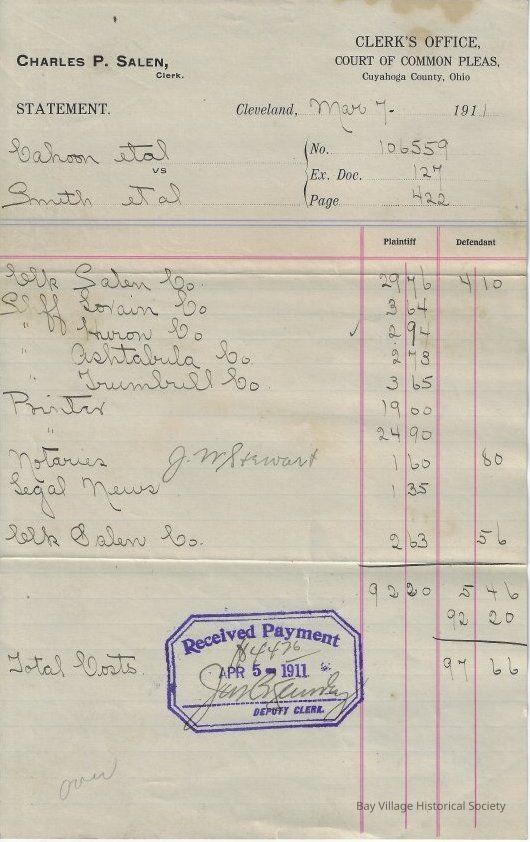 CLERK'S OFFICE,
CHARLES P. SALEN,
Clerk.
COURT OF COMMON PLEAS,
Cuyahoga County, Ohio
STATEMENT.
Cleveland, Mar 7- 1911
Cahoon et al
vs
Smith et al
No. 106559
Ex. Doc. 127
Page 422
Plaintiff Defendant
Clk Salen Co. 29 76 4 10
Shff Lorain Co 3 64
" Huron Co ✓ 2 94
" Ashtabula Co. 2 73
" Trumbull Co. 3 65
Printer 19 00
" 24 90
Notaries J. W Stewart 1 60 80
Legal News 1 35
Clk Salen Co. 2 63 56
92 20 5 46
92 20
Total Costs. 97 66
Received Payment
APR 5 - 1911
DEPUTY CLERK.
over
Bay Village Historical Society